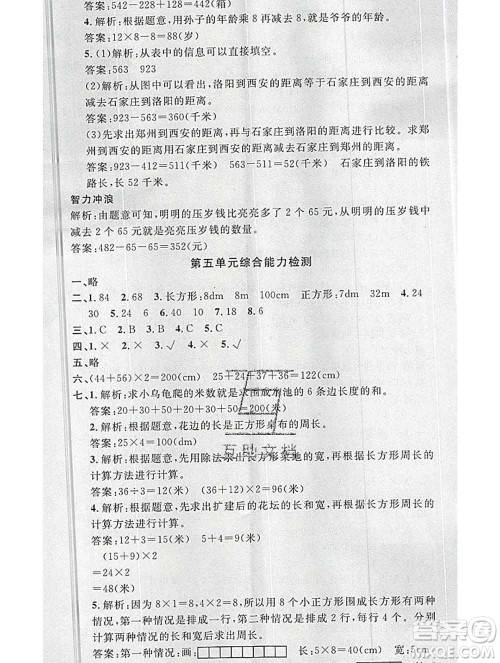 答案:542-228+128=442(箱)
4.解析:根据题意,用孙子的年龄乘8再减去8,就是爷爷的年龄。
答案:12×8-8=88(岁)
5.(1)解析:从图中可以直接填空。
答案:563 923
(2)解析:从图中可以看出,洛阳到西安的距离等于石家庄到西安的距离
减去石家庄到洛阳的距离。
答案:923-563=360(千米)
(3)先求出郑州到西安的距离,再与石家庄到洛阳的距离作比较。求郑
州到西安的距离,用石家庄到西安的距离减去石家庄到郑州的距离。
答案:923-412=511(千米) 563-511=52(千米) 石家庄到洛阳的铁
路长,长52千米。
智力冲浪
解析:由题意可知,明明的压岁钱比亮亮多了2个65元,从明明的钱数里
减去2个65元,就是亮亮压岁钱的数量。
答案:482-65-65=352(元)
第五单元综合能力检测
一、略
二、1.84 2.68 3.长方形:8dm 8m 100cm 正方形:7dm 32m 4.24
30 5.24 6.40 7.10 8.18 9.18 8.6
三、1.C 2.B 3.C 4.B
四、1.× 2.× 3.√ 4.× 5.√
五、略
六、(44+56)×2=200(cm) 25+24+37+36=122(cm)
七、1.解析:求小乌龟爬的米数就是求围成水池的6条边长度的和。
答案:20+20+40+20+50+50=200(米)
2.解析:根据题意,花边的长是正方形桌布的周长。
答案:25×4=100(dm)
3.解析:根据题意,先用除法求出长方形菜地的宽,再根据长方形周长的
计算方法进行计算。
答案:36÷3=12(米) (36+12)×2=96(米)
4.解析:根据题意,先求出改建后的花坛的长和宽,再根据长方形周长的
计算方法进行计算。
答案:12+3=15(米) 5+4=9(米)
(15+9)×2
=24×2
=48(米)
5.解析:因为8×1=8,4×2=8,所以用8个小正方形围成长方形有两种
情况,第一种情况是排成一行,第二种情况是排成2行,每行4个。分别
计算两种情况的长和宽,再根据两种情况的长和宽计算周长。
答案:第一种情况:画: 长:5×8=40(cm) 宽:5cm
互助文档